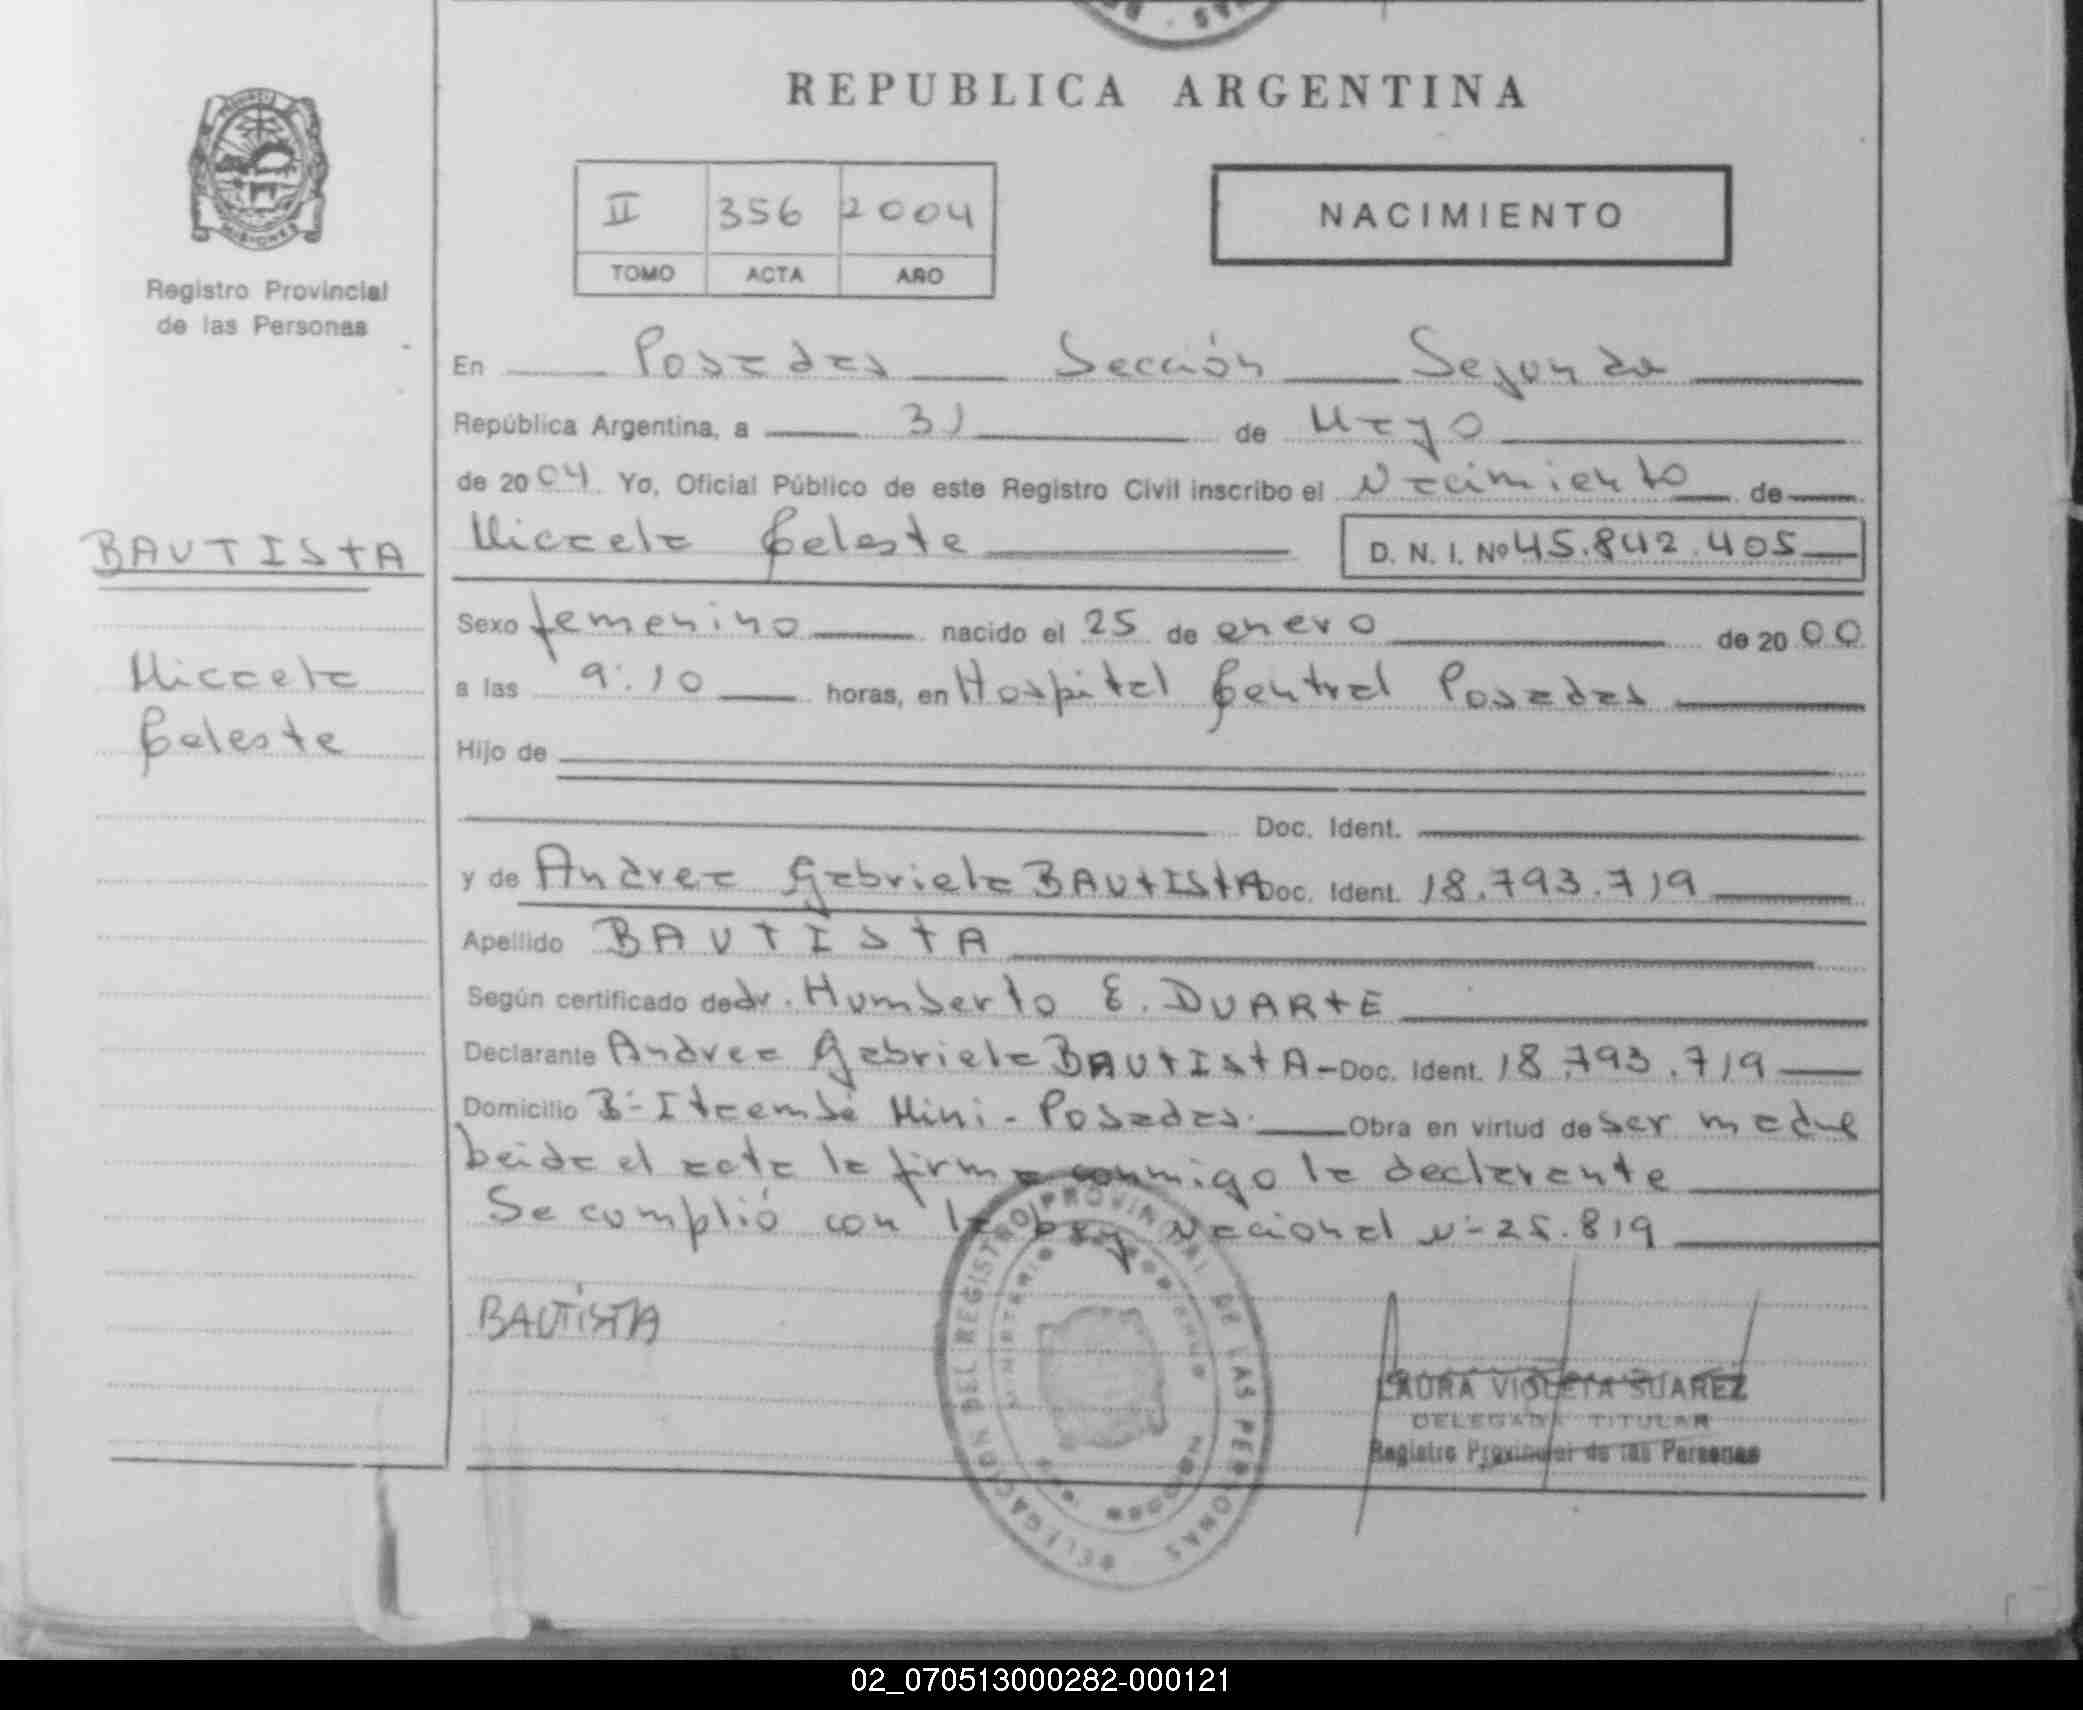 REPUBLICA ARGENTINA
MISIONES
Registro Provincial
de las Personas
II 356 2004
TOMO ACTA AÑO
NACIMIENTO
En Posadas Sección Segunda
República Argentina, a 31 de Mayo
de 2004 Yo, Oficial Público de este Registro Civil inscribo el Nacimiento de
BAUTISTA
Micaela Celeste D. N. I. Nº 45.842.405
Sexo femenino nacido el 25 de enero de 2000
Micaela
Celeste
a las 9:10 horas, en Hospital Central Posadas
Hijo de
Doc. Ident.
y de Andrea Gabriela BAUTISTA Doc. Ident. 18.793.719
Apellido BAUTISTA
Según certificado de dr. Humberto E. DUARTE
Declarante Andrea Gabriela BAUTISTA - Doc. Ident. 18.793.719
Domicilio Bº Itaembé Mini - Posadas. Obra en virtud de ser madre
Leida el acta la firma conmigo la declarante
Se cumplió con la Ley Nacional Nº 25.819
BAUTISTA
DELEGACION DEL REGISTRO PROVINCIAL DE LAS PERSONAS
LAURA VIOLETA SUAREZ
DELEGADA TITULAR
Registro Provincial de las Personas
02_070513000282-000121